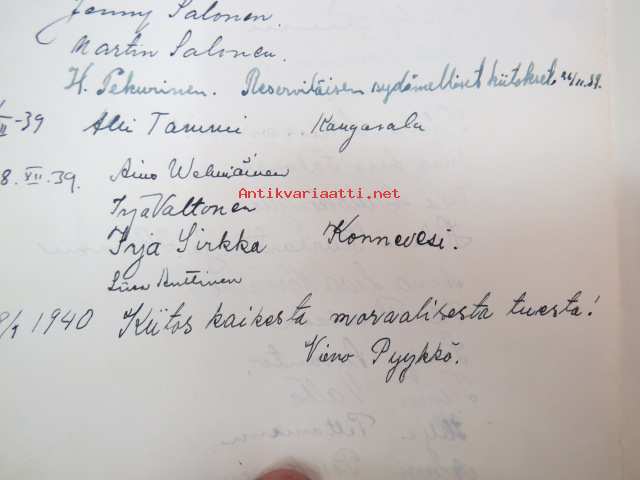 Jenny Salonen.
Martin Salonen.
H. Pekurinen. Reserviläisen sydämelliset kiitokset. 26/11.39.
-39 Alli Tammi Kangasala
8.XII.39. Aino Welmäinen
Antikvariaatti.net
Irja Valtonen
Irja Sirkka Konnevesi.
Liisa Ruttinen
8/I 1940 Kiitos kaikesta moraalisesta tuesta!
Vieno Pyykkö.